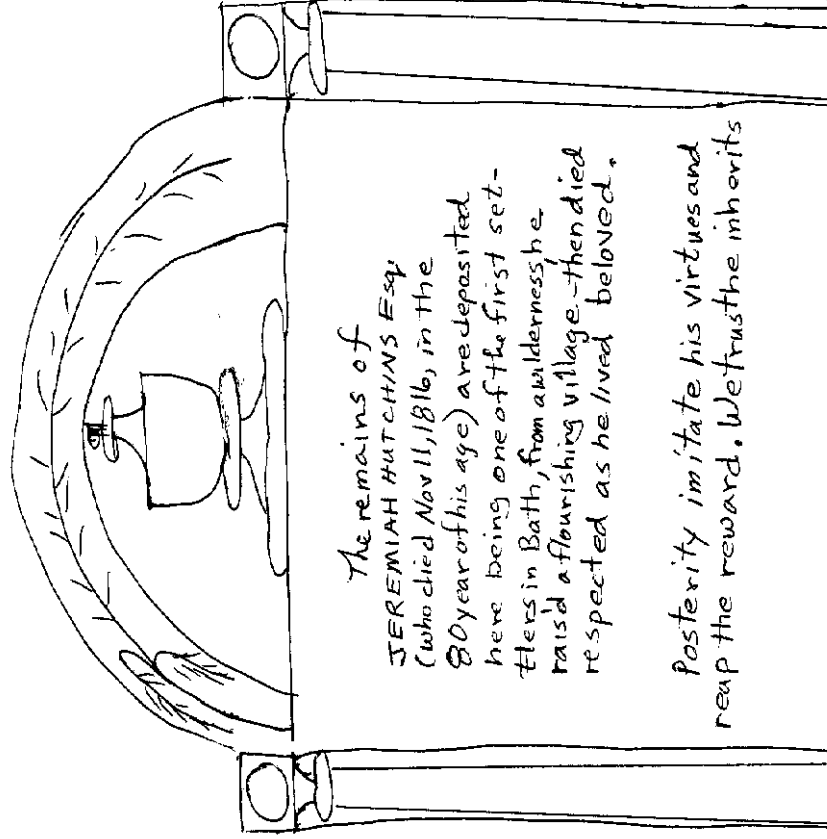 The remains of
JEREMIAH HUTCHINS Esq.
(who died Nov 11, 1816, in the
80 year of his age) are deposited
here being one of the first set-
tlers in Bath, from a wilderness he
rais'd a flourishing village - then died
respected as he lived beloved.
Posterity imitate his virtues and
reap the reward. We trust he inherits